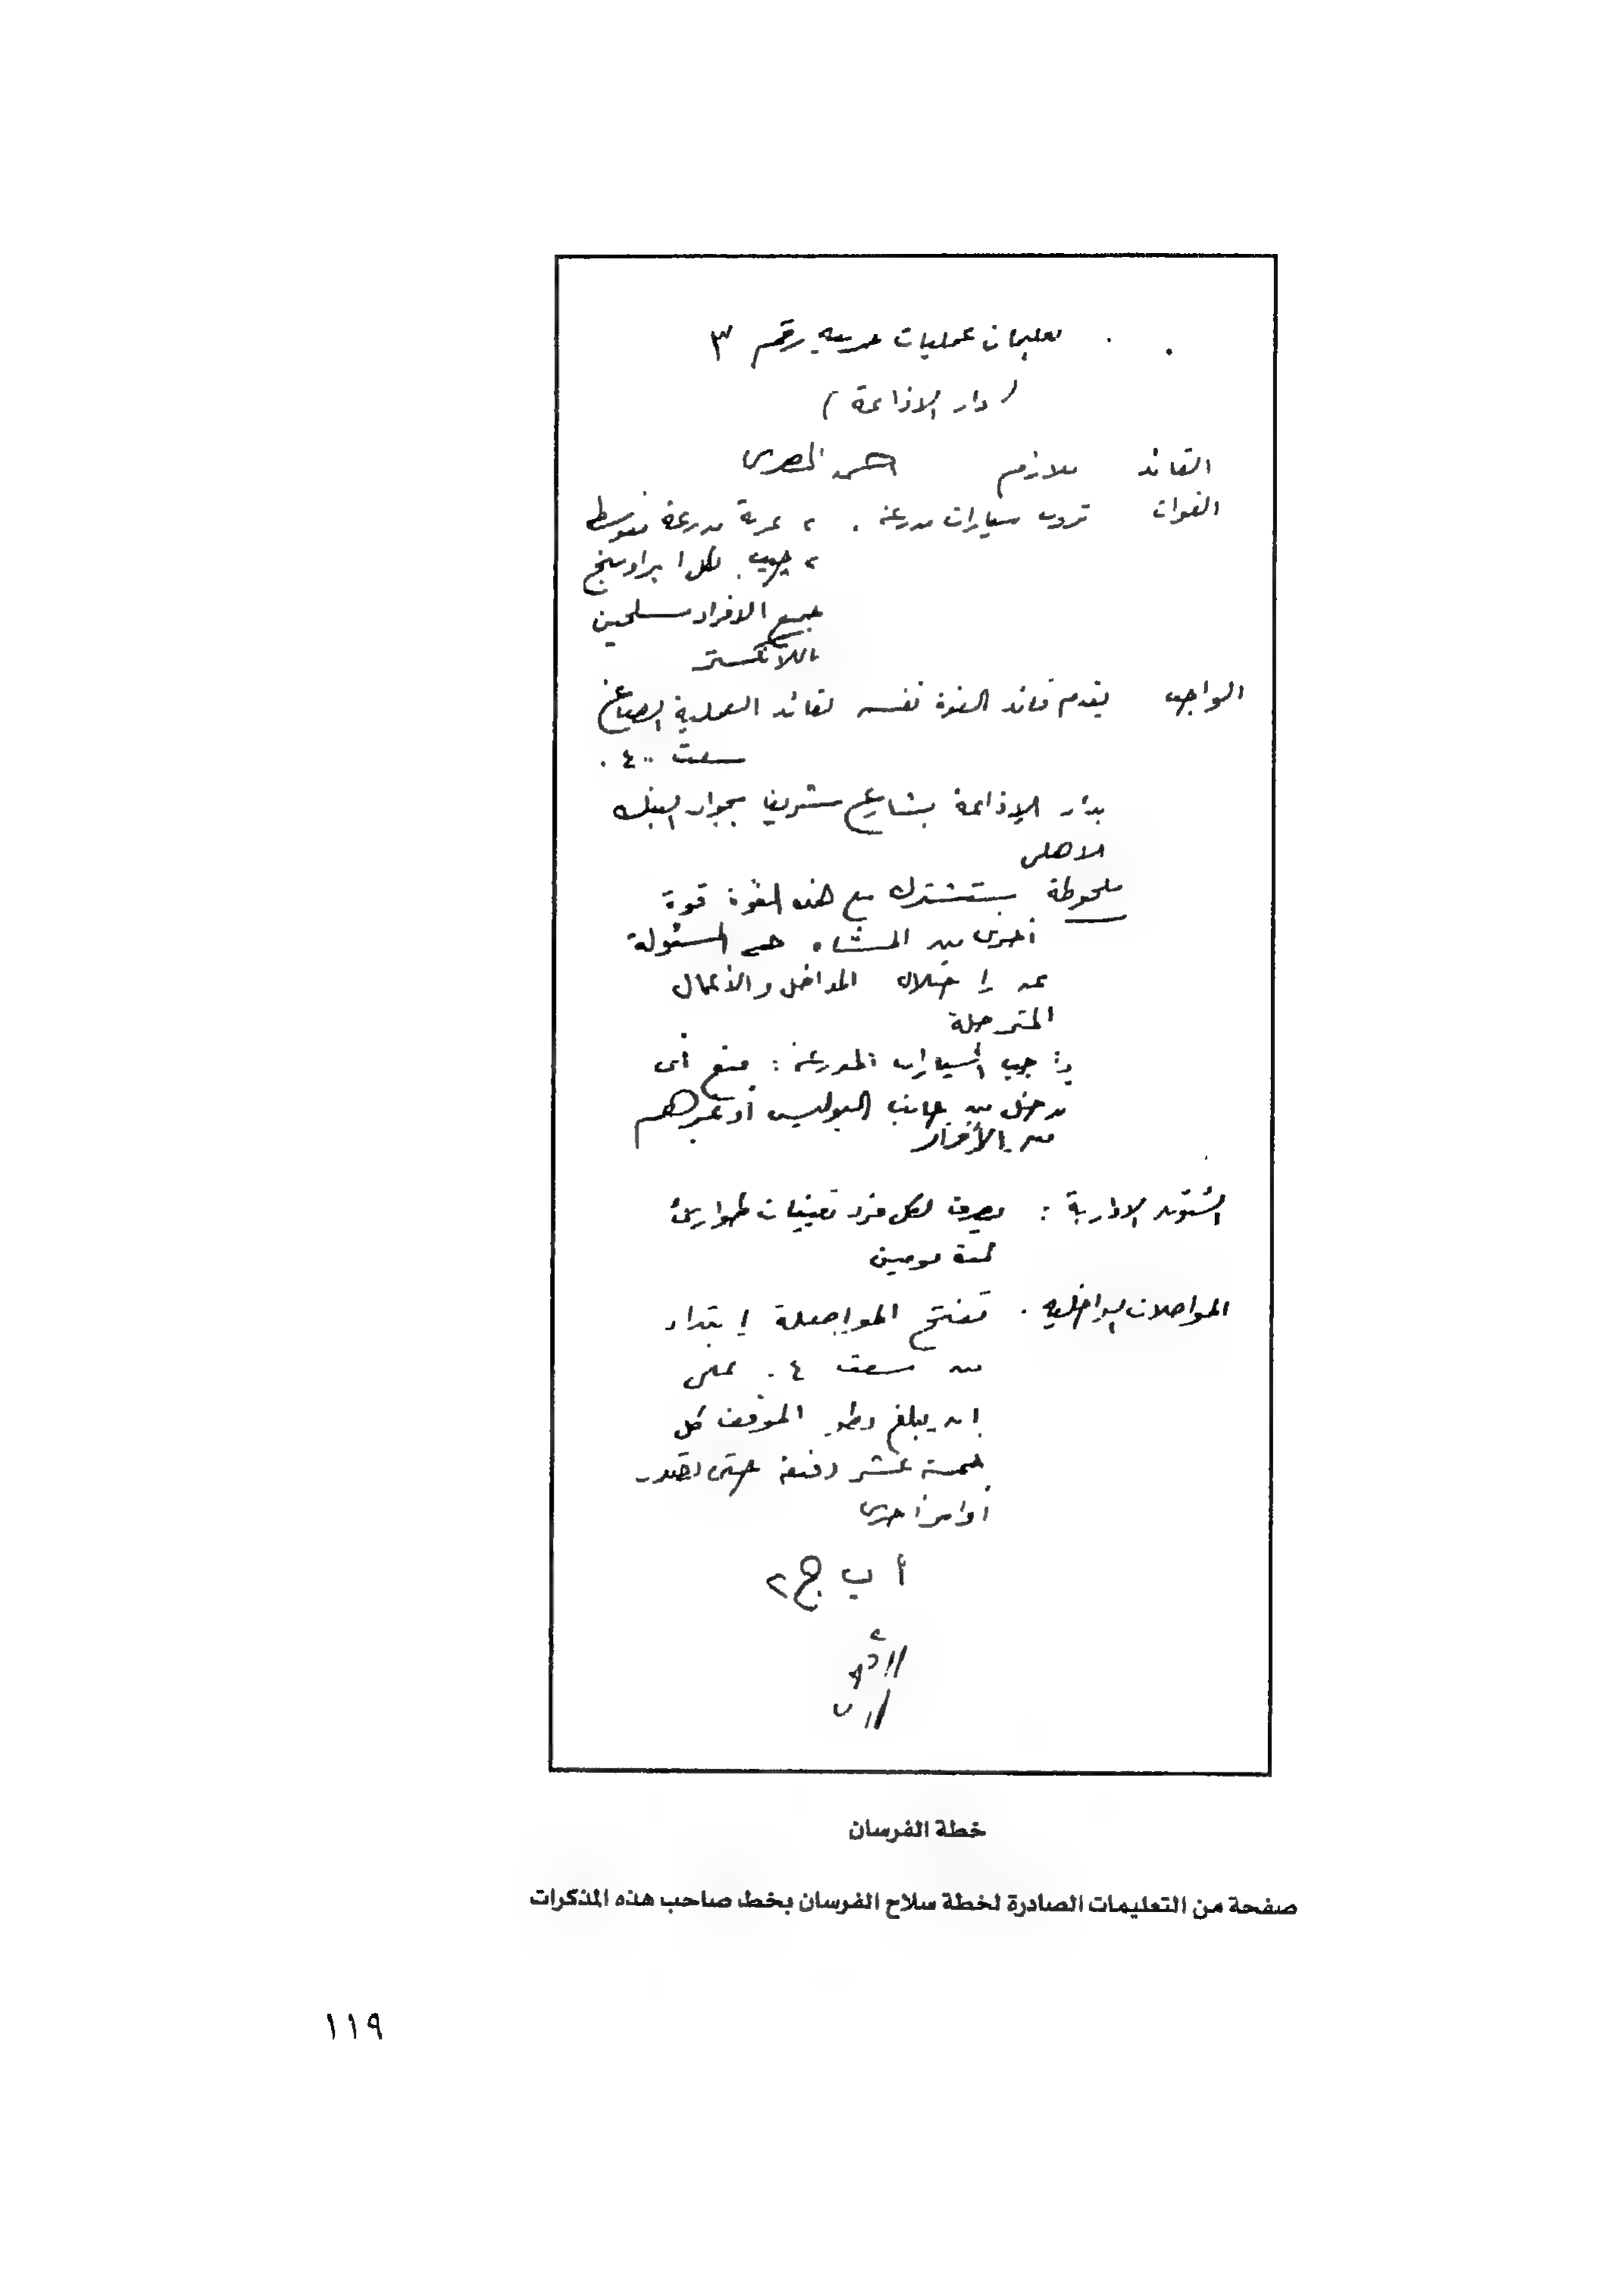 تعليمات عمليات حربية رقم ٣
( دار الاذاعة )
القائد ملازم حسن المصرى
القوات تروب سيارات مدرعة . ٢ عربة مدرعة متوسط
٢ جيب . لكل ١ براوننج
جميع الافراد مسلحين
باللانكستر
الواجب يقدم قائد القوة نفسه لقائد العملية
سعت ٠٤٠٠
بدار الإذاعة بشارع شريف بجوار البنك
الاهلى
ملحوظة ستشترك مع هذه القوة قوة
أخرى من المشاه هى المسئولة
عن إحتلال المداخل والأعمال
المترجلة
واجب السيارات المدرعة : منع أى
تدخل من جانب البوليس أو غيرهم
من الأفراد
الشئون الادارية : يصرف لكل فرد تعيينات طوارئ
لمدة يومين
المواصلات الداخلية . تفتح المواصلة إبتداء
من سعت ٠٤ على
ان يبلغ تطور الموقف كل
خمسة عشر دقيقة حتى تصدر
أوامر أخرى
أ ب ج ٢
خطة الفرسان
صفحة من التعليمات الصادرة لخطة سلاح الفرسان بخط صاحب هذه المذكرات
١١٩